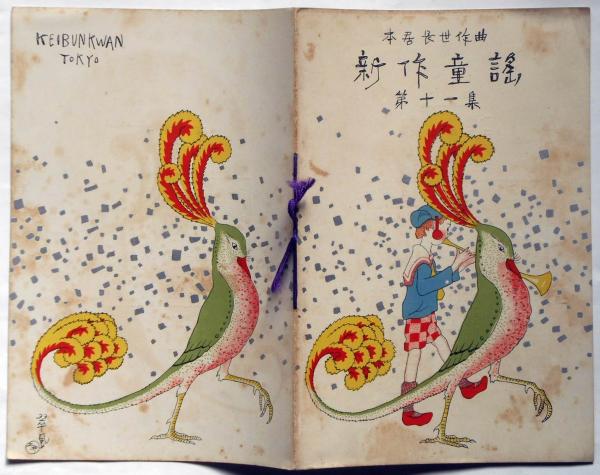 KEIBUNKWAN
TOKYO
本居長世作曲
新作童謠
第十一集